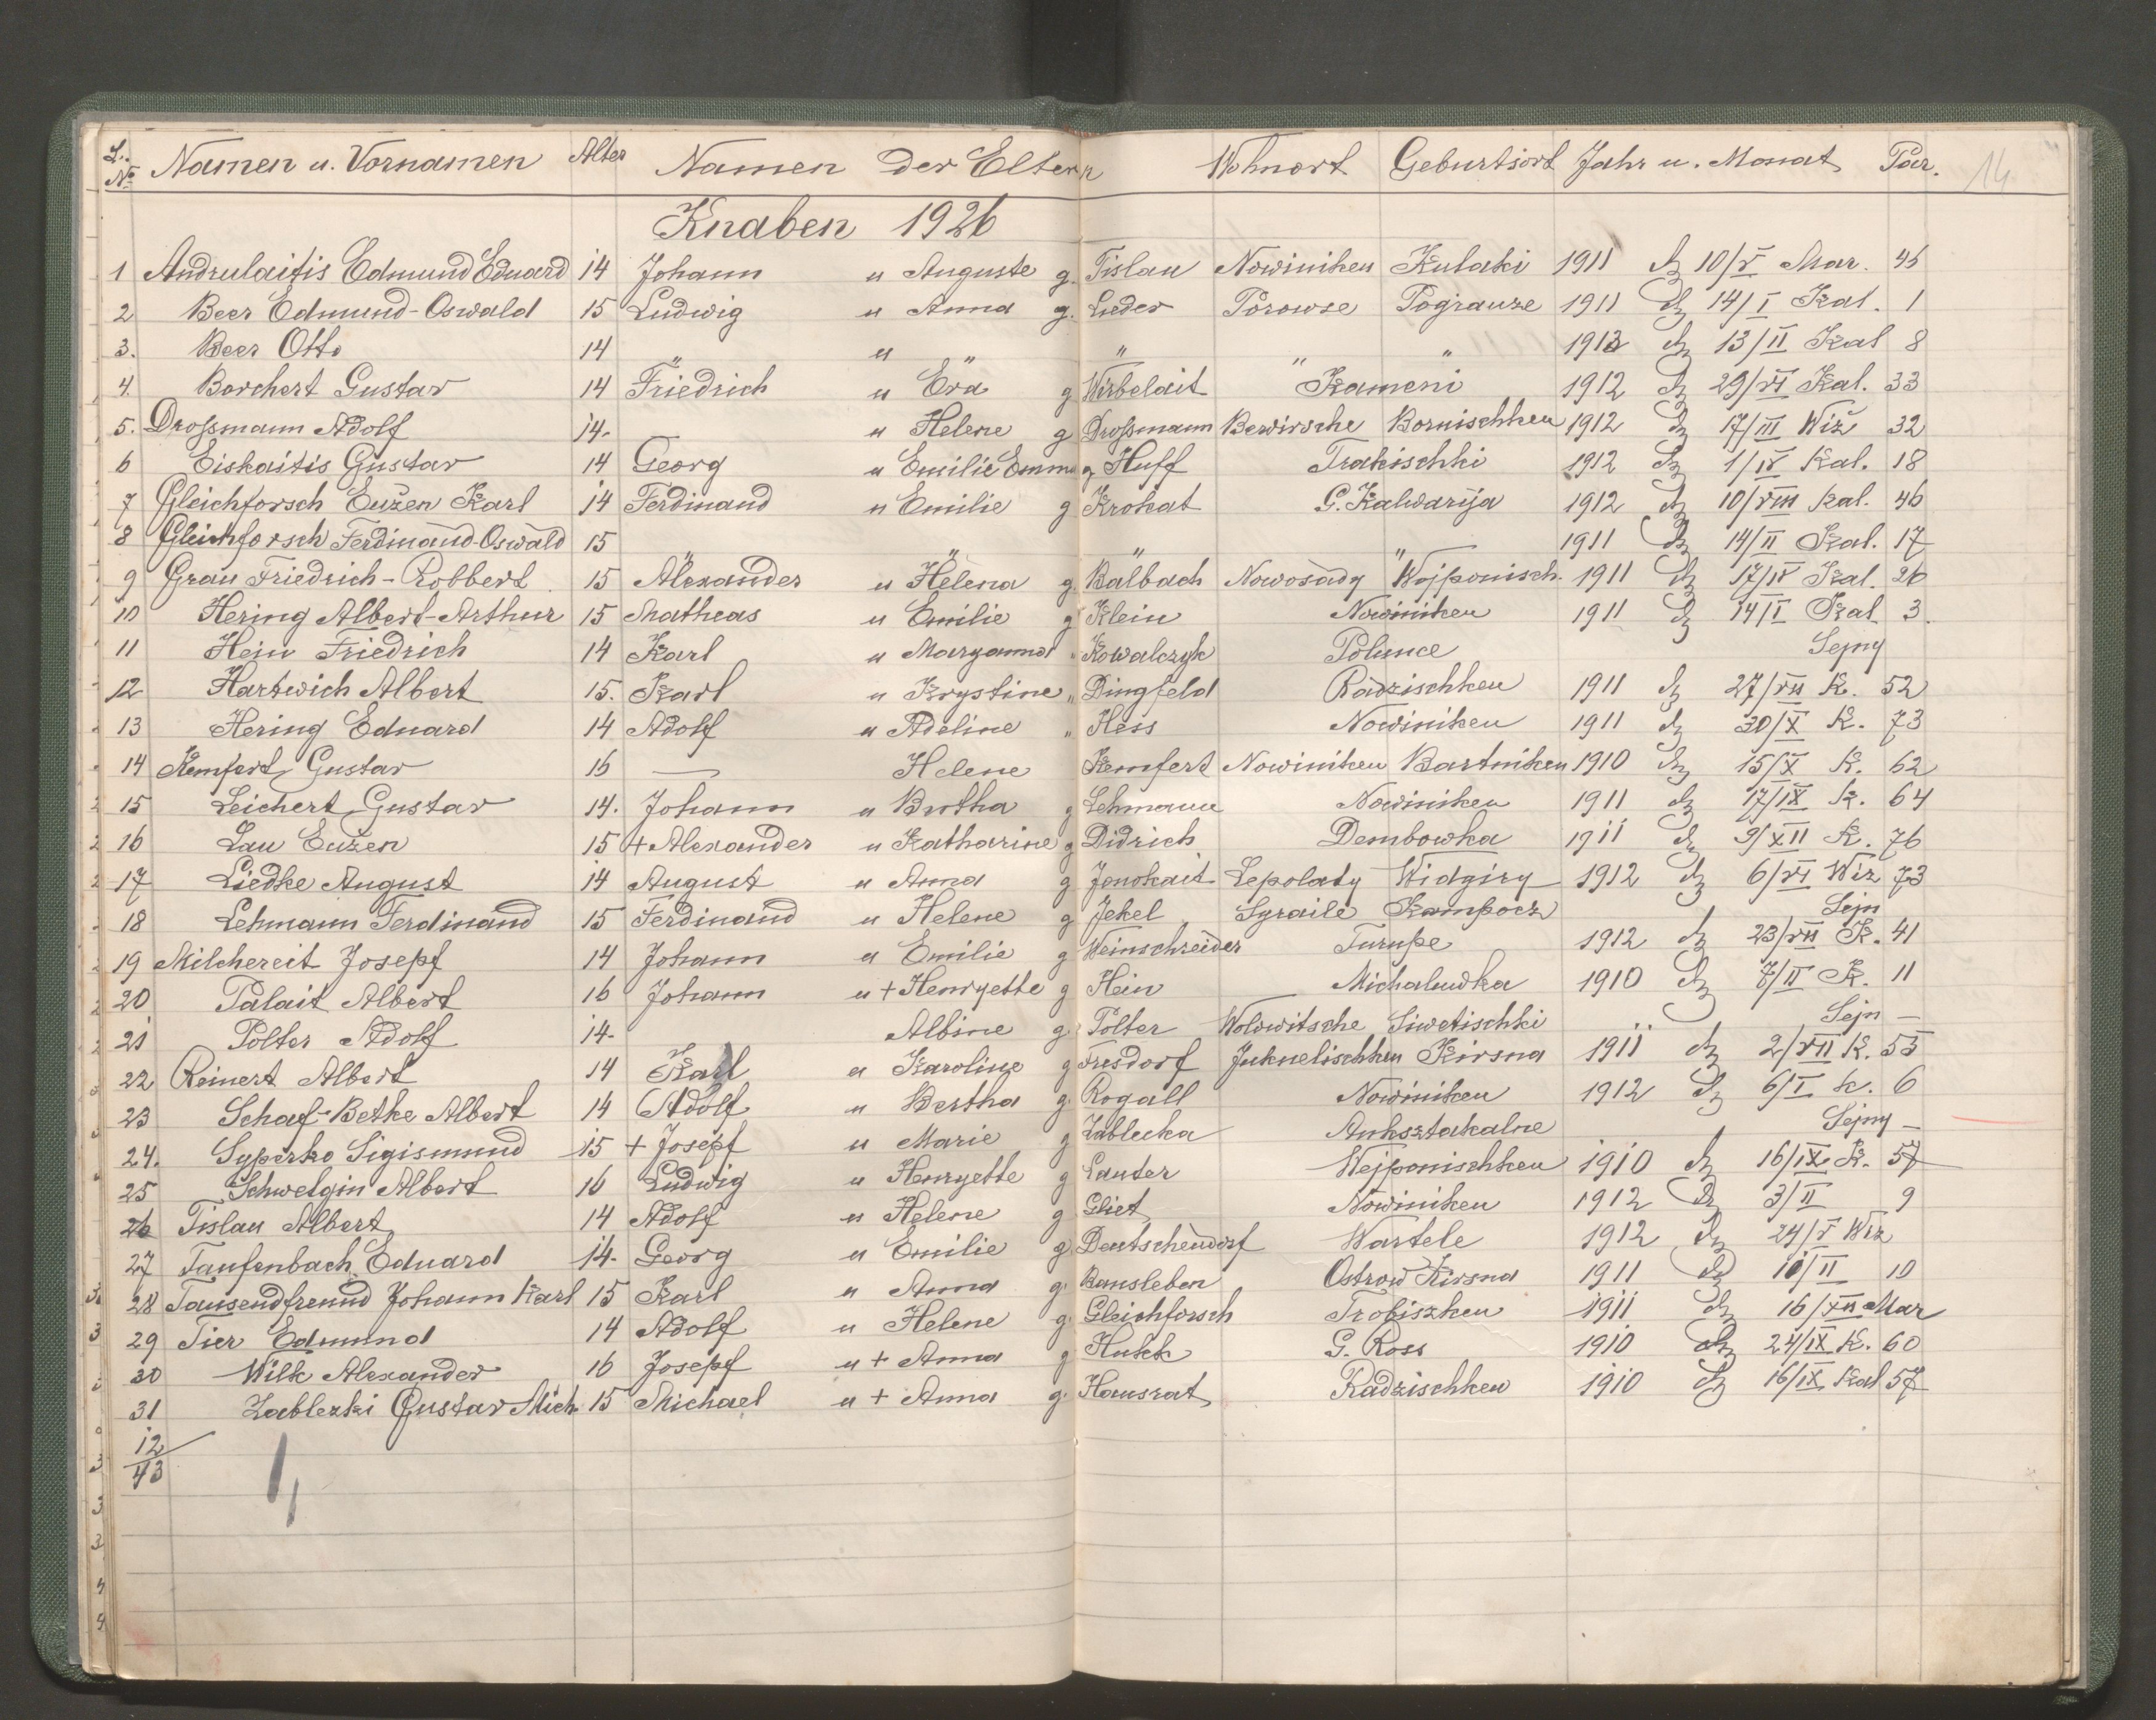 L. No Namen u. Vornamen Alter Namen der Eltern Wohnort Geburtsort Jahr u. Monat Par. 14
Knaben 1926
1 Andrulaitis Edmund Eduard 14 Johann u Auguste g. Tislau Nowiniken Kulaki 1911 dz 10/V Mar. 45
2 Beer Edmund-Oswald 15 Ludwig u Anna g. Lieder Porowse Pograuze 1911 dz 14/I Kal. 1
3. Beer Otto 14 " u " " " " 1913 dz 13/II Kal 8
4. Borchert Gustav 14 Friedrich u Eva g Wirbelait Kameni 1912 dz 29/VI Kal. 33
5. Droßmann Adolf 14. u Helene g Droßmann Berwirsche Bornischken 1912 dz 17/III Wiž 32
6 Eiskaitis Gustav 14 Georg u Emilie Emma g Huff Trakischki 1912 dz 1/IV Kal. 18
7 Gleichforsch Eužen Karl 14 Ferdinand u Emilie g Krokat G. Kalwarija 1912 dz 10/VIII Kal. 46
8 Gleichforsch Ferdinand-Oswald 15 " " " " 1911 dz 14/II Kal. 17
9 Grau Friedrich-Robbert 15 Alexander u Helena g. Kalbach Nowosady Wojponisch. 1911 dz 17/IV Kal. 26
10 Hering Albert-Arthur 15 Matheas u Emilie g Klein Nowiniken 1911 dz 14/I Kal 3.
11 Hein Friedrich 14 Karl u Maryanna " Kowalczyk Polunce Sejny
12 Hartwich Albert 15. Karl u Krystine " Dingfeld Radzischken 1911 dz 27/VII K. 52
13 Hering Eduard 14 Adolf u Adeline " Hess Nowiniken 1911 dz 30/X K. 73
14 Kemfert Gustav 16 — Helene Kemfert Nowiniken Bartniken 1910 dz 15/X K. 62
15 Leichert Gustav 14. Johann u Brotha g Lehmann Nowiniken 1911 dz 17/IX K. 64
16 Lau Eužen 15 + Alexander u Katharine g Didrich Dembowka 1911 dz 9/XII K. 76
17 Liedke August 14 August u Anna g Jonokait Lepolaty Widgiry 1912 dz 6/VI Wiz 73
18 Lehmann Ferdinand 15 Ferdinand u Helene g Jekel Syraile Kampocz Sejn
19 Milchereit Josepf 14 Johann u Emilie g Weinschreider Turupe 1912 dz 23/VII K. 41
20 Palait Albert 16 Johann u + Henryette g Hein Michaluwka 1910 dz 7/II K. 11
21 Polter Adolf 14. Albine g Polter Wolowitsche Siwetischki Sejn —
22 Reinert Albert 14 Karl u Karoline g Fresdorf Juknelischken Kirsna 1911 dz 2/VII K. 55
23 Schaf-Betke Albert 14 Adolf u Bertha g. Rogall Nowiniken 1912 dz 6/I K. 6
24. Syperko Sigismund 15 + Josepf u Marie g Zablecka Auksztakalne Sejny —
25 Schwelgin Albert 16 Ludwig u Henryette g Lauter Wejponischken 1910 dz 16/IX K. 57
26 Tislau Albert 14 Adolf u Helene g Gliet Nowiniken 1912 dz 3/II 9
27 Taufenbach Eduard 14. Georg u Emilie g Deutschendorf Wartele 1912 dz 24/V Wiz
28 Tausendfreund Johann Karl 15 Karl u Anna g. Ramsleben Ostrow Kirsna 1911 dz 10/II 10
29 Tier Edmund 14 Adolf u Helene g. Gleichforsch Trobiszken 1911 dz 16/XII Mar
30 Wilk Alexander 16 Josepf u + Anna g Hukk G. Ross 1910 dz 24/IX K. 60
31 Zablezki Gustav Mich. 15 Michael u + Anna g. Hausrat Radzischken 1910 dz 16/IX Kal 57
12
43